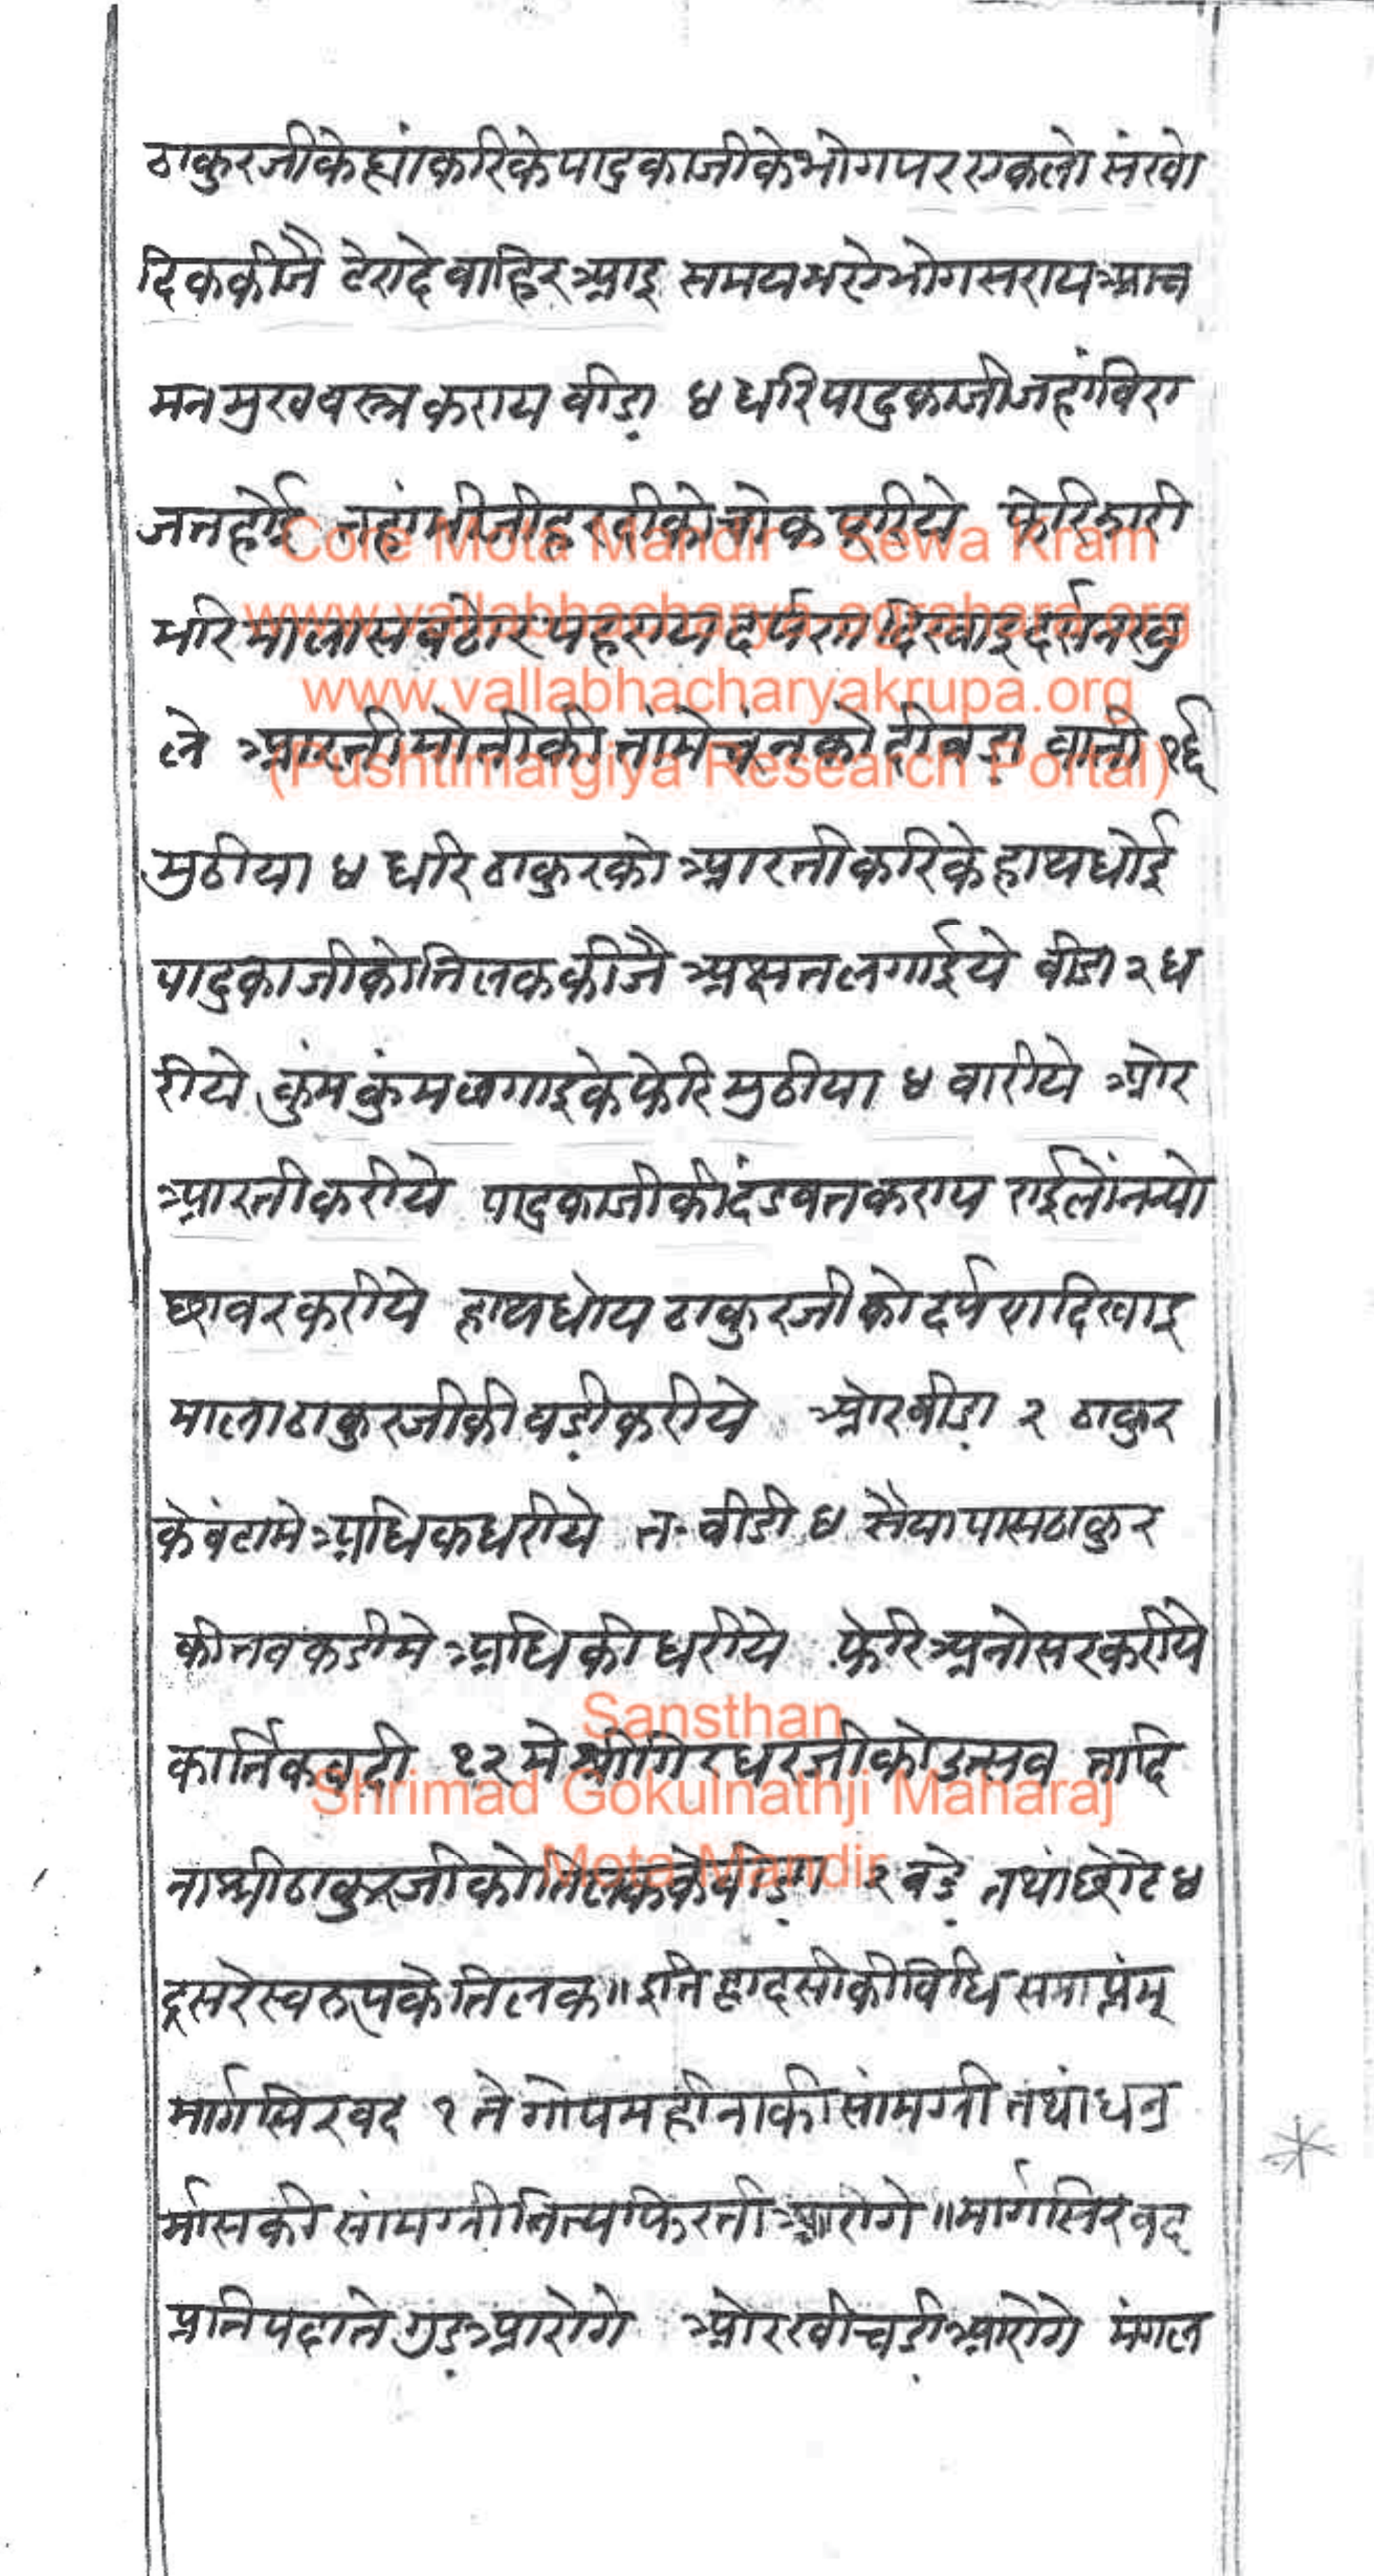 ठाकुरजीके ह्यां करिके पादुकाजीके भोग पर एकलो संखो
दिक कीजै टेरा दे वाहिर आइ समय भए भोग सराय आच
मन मुखवस्त्र कराय बीडा़ ४ धरि पादुकाजी जहां विरा
जत होई तहां भीजी हरदीको चोक पूरीये फेरि झारी
भरि माला सब ठोर पहराय दर्पण दिखाइ दर्सन खु
ले आरती मोतीकी तामें चूंनको दीवडा वाती १६
मुठीया ४ धरि ठाकुरको आरती करिके हाथ धोई
पादुकाजीको तिलक कीजै अक्षत लगाईये वीडा २ ध
रीये कुंमकुंम लगाइके फेरि मुठीया ४ वारीये ओर
आरती करीये पादुकाजीकी दंडवत कराय राई लोंन न्यो
छावर करीये हाथ धोय ठाकुरजीको दर्पण दिखाइ
माला ठाकुरजीकी वडी़ करीये ओर बीडा़ २ ठाकुर
के बंटामे अधिक धरीये त. वीडी ४ सैया पास ठाकुर
की तवकडीमे अधिकी धरीये फेरि अनोसर करीये
कार्तिक वदी १२ मे श्रीगिरधरजीको उत्सव तादि
ना श्रीठाकुरजीको तिलकके वीडा़ २ बडे़ तथां छोटे ४
दूसरे स्वरूपके तिलक॥ इति द्वादसीकी विधि समाप्तंम्
मार्गसिर वद १ ते गोपमहीनाकी सांमग्री तथां धनु
र्मासकी सांमग्री नित्य फिरती आरोगे॥ मार्गसिर वद
प्रतिपदाते गुड़ आरोगे ओर खीचडी़ आरोगे मंगल
Core Mota Mandir - Sewa Kram
www.vallabhacharya-agrahara.org
www.vallabhacharyakrupa.org
(Pushtimargiya Research Portal)
Sansthan
Shrimad Gokulnathji Maharaj
Mota Mandir